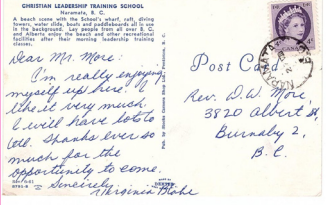 CHRISTIAN LEADERSHIP TRAINING SCHOOL
Naramata, B. C.
A beach scene with the School's wharf, raft, diving
towers, water slide, boats and paddleboards all in use
in the background. Lay people from all over B. C.
and Alberta enjoy the beach and other recreational
facilities after their morning leadership training
classes.
Dear Mr. More:
I'm really enjoying
myself up here. I
like it very much.
I will have lots to
tell. Thanks ever so
much for the
opportunity to come.
Sincerely
Virginia
Post Card
Rev. D. W. More
3820 Albert St,
Burnaby 2,
B. C.